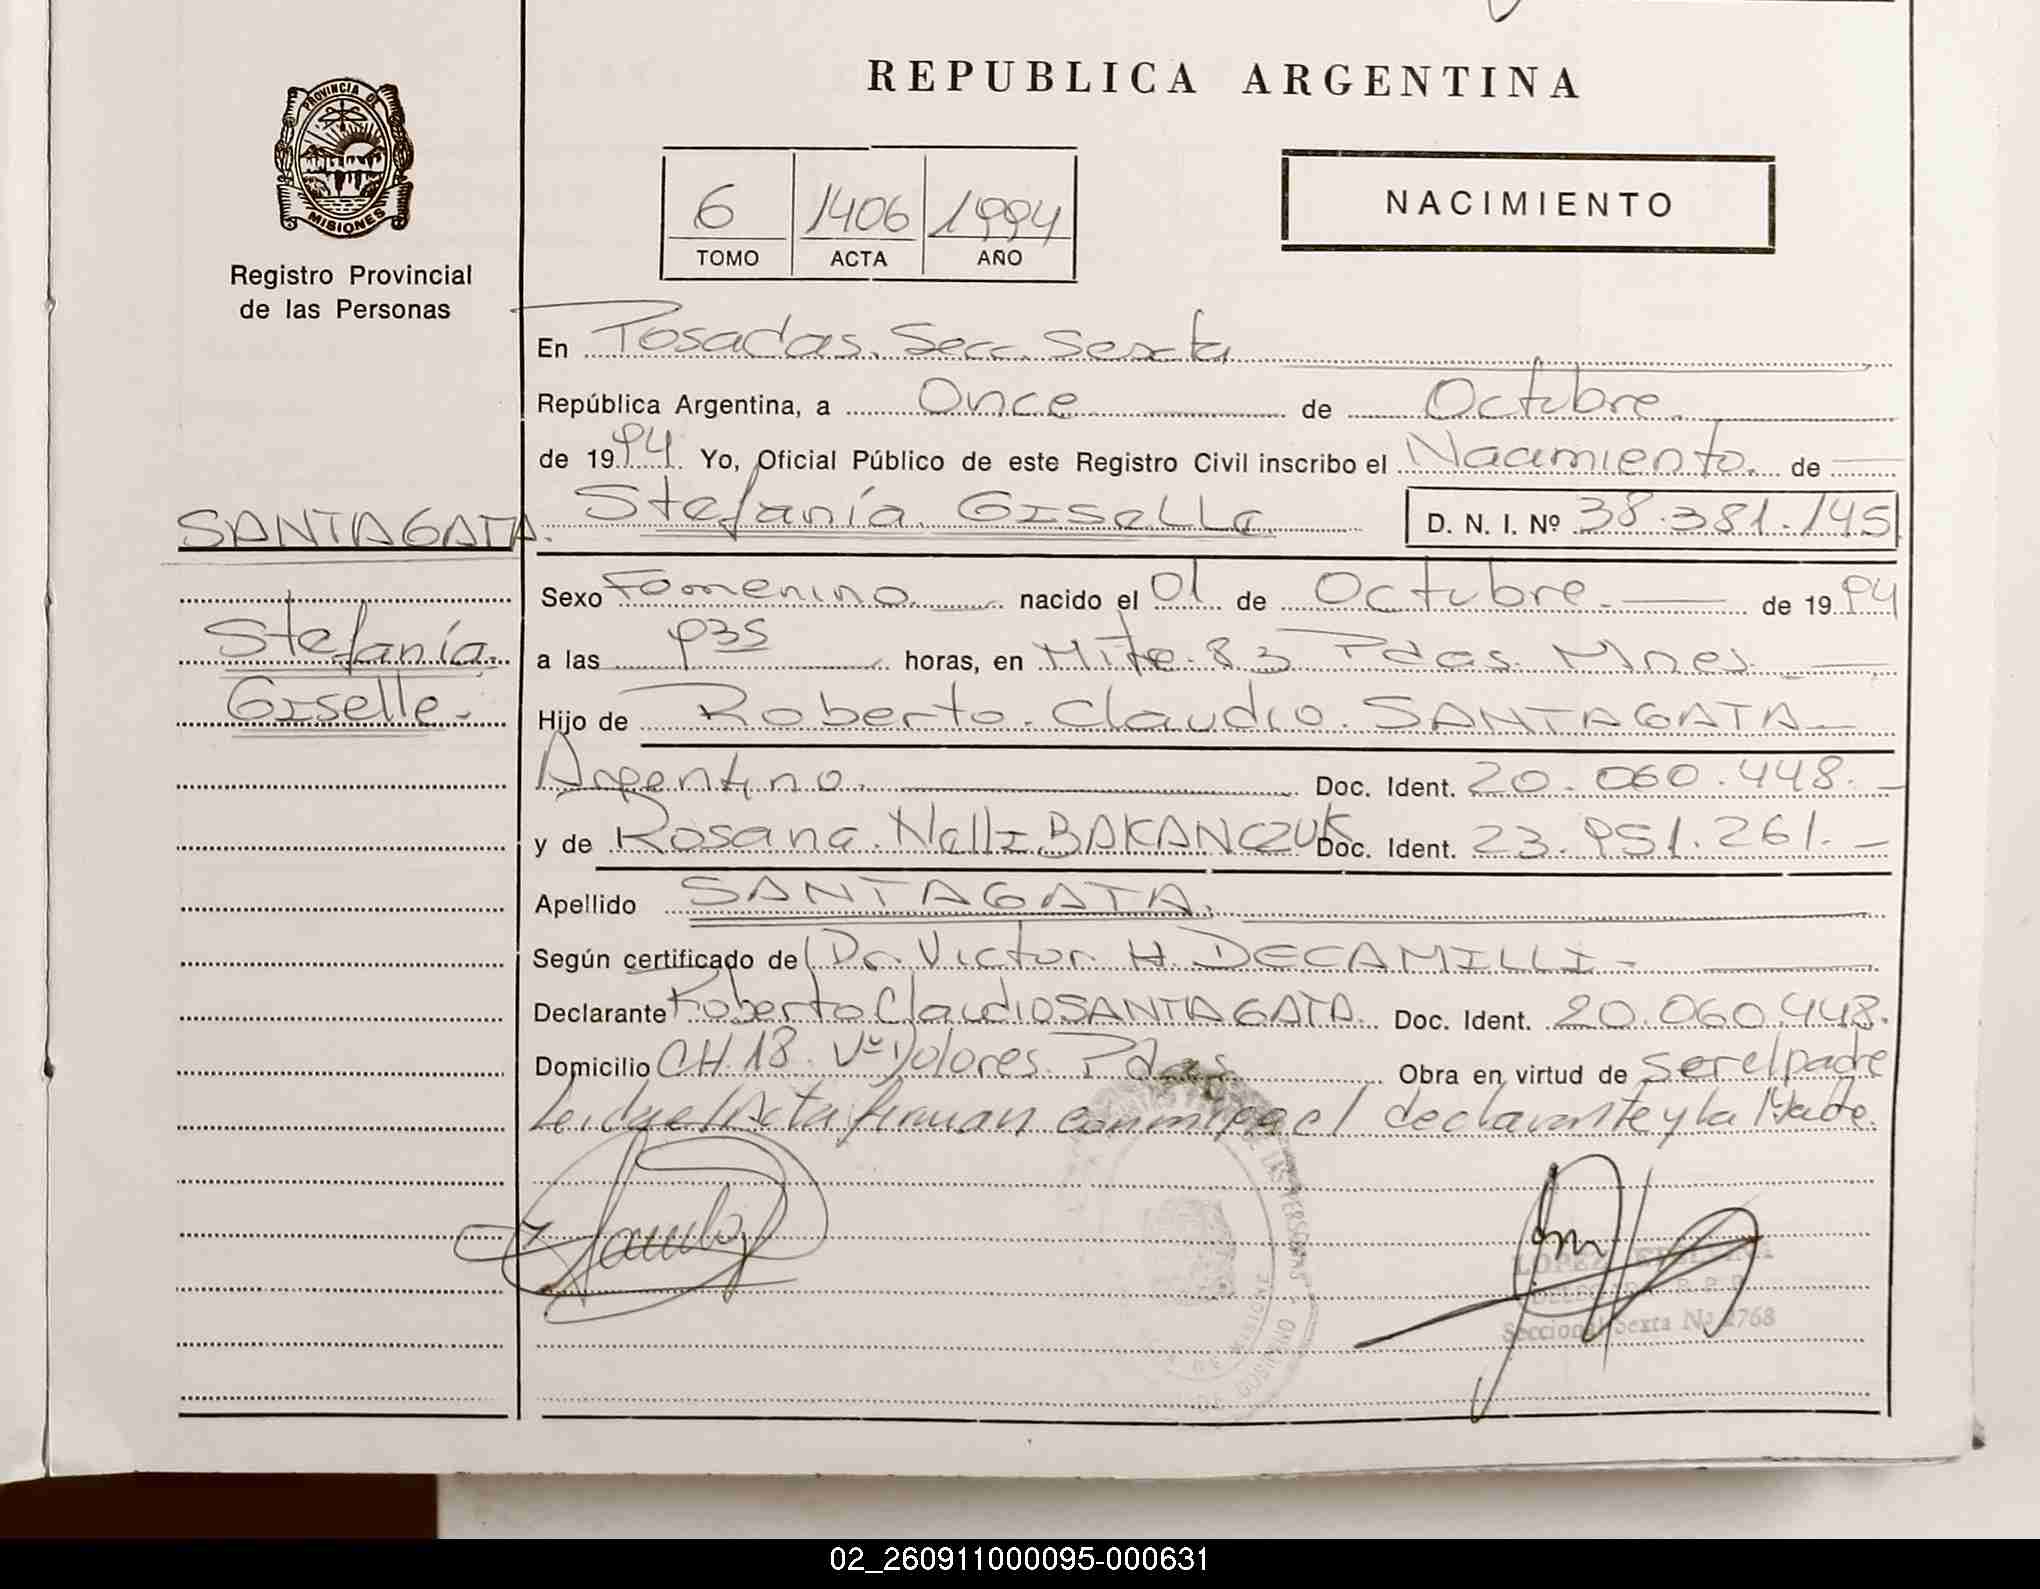 REPUBLICA ARGENTINA
PROVINCIA DE
MISIONES
Registro Provincial
de las Personas
6 1406 1994
TOMO ACTA AÑO
NACIMIENTO
En Posadas. Secc. Sexta
República Argentina, a Once de Octubre.
de 1994. Yo, Oficial Público de este Registro Civil inscribo el Nacimiento. de
SANTAGATA. Stefanía Giselle D. N. I. Nº 38.381.145
Sexo Femenino nacido el 01 de Octubre. de 1994
Stefanía a las 935 horas, en Mitre. 83 Pdas. Mnes.
Giselle. Hijo de Roberto. Claudio. SANTAGATA
Argentino. Doc. Ident. 20.060.448.
y de Rosana. Nelli BAKANCZUK Doc. Ident. 23.951.261.
Apellido SANTAGATA.
Según certificado de Dr. Victor H. DECAMILLI
Declarante Roberto Claudio SANTAGATA. Doc. Ident. 20.060.448.
Domicilio CH. 18. Vª Dolores. Pdas Obra en virtud de ser el padre
Leida el Acta firman conmigo el declarante y la Madre.
DE LAS PERSONAS
LOPEZ
Seccional Sexta Nº 2768
02_260911000095-000631